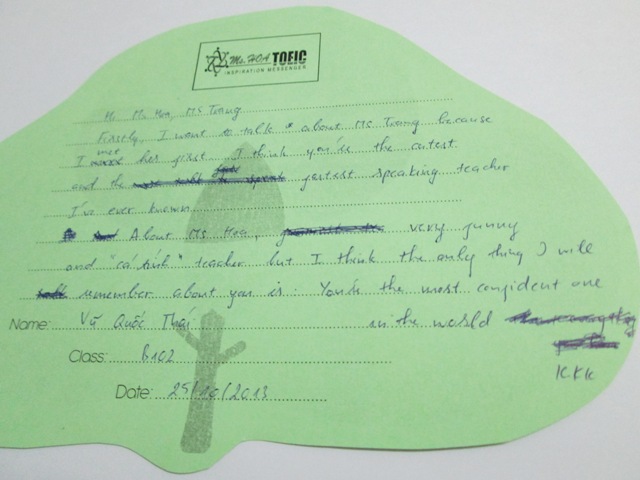 Ms. HOA TOEIC
INSPIRATION MESSENGER
Hi Ms Hoa, Ms Trang
Firstly, I want to talk about Ms Trang because
I met her first. I think you're the cutest
and the fastest speaking teacher
I've ever known
About Ms Hoa, very funny
and "cá tính" teacher but I think the only thing I will
remember about you is: You're the most confident one
in the world
Name: Vũ Quốc Thái
KKK
Class: B102
Date: 25/10/2013